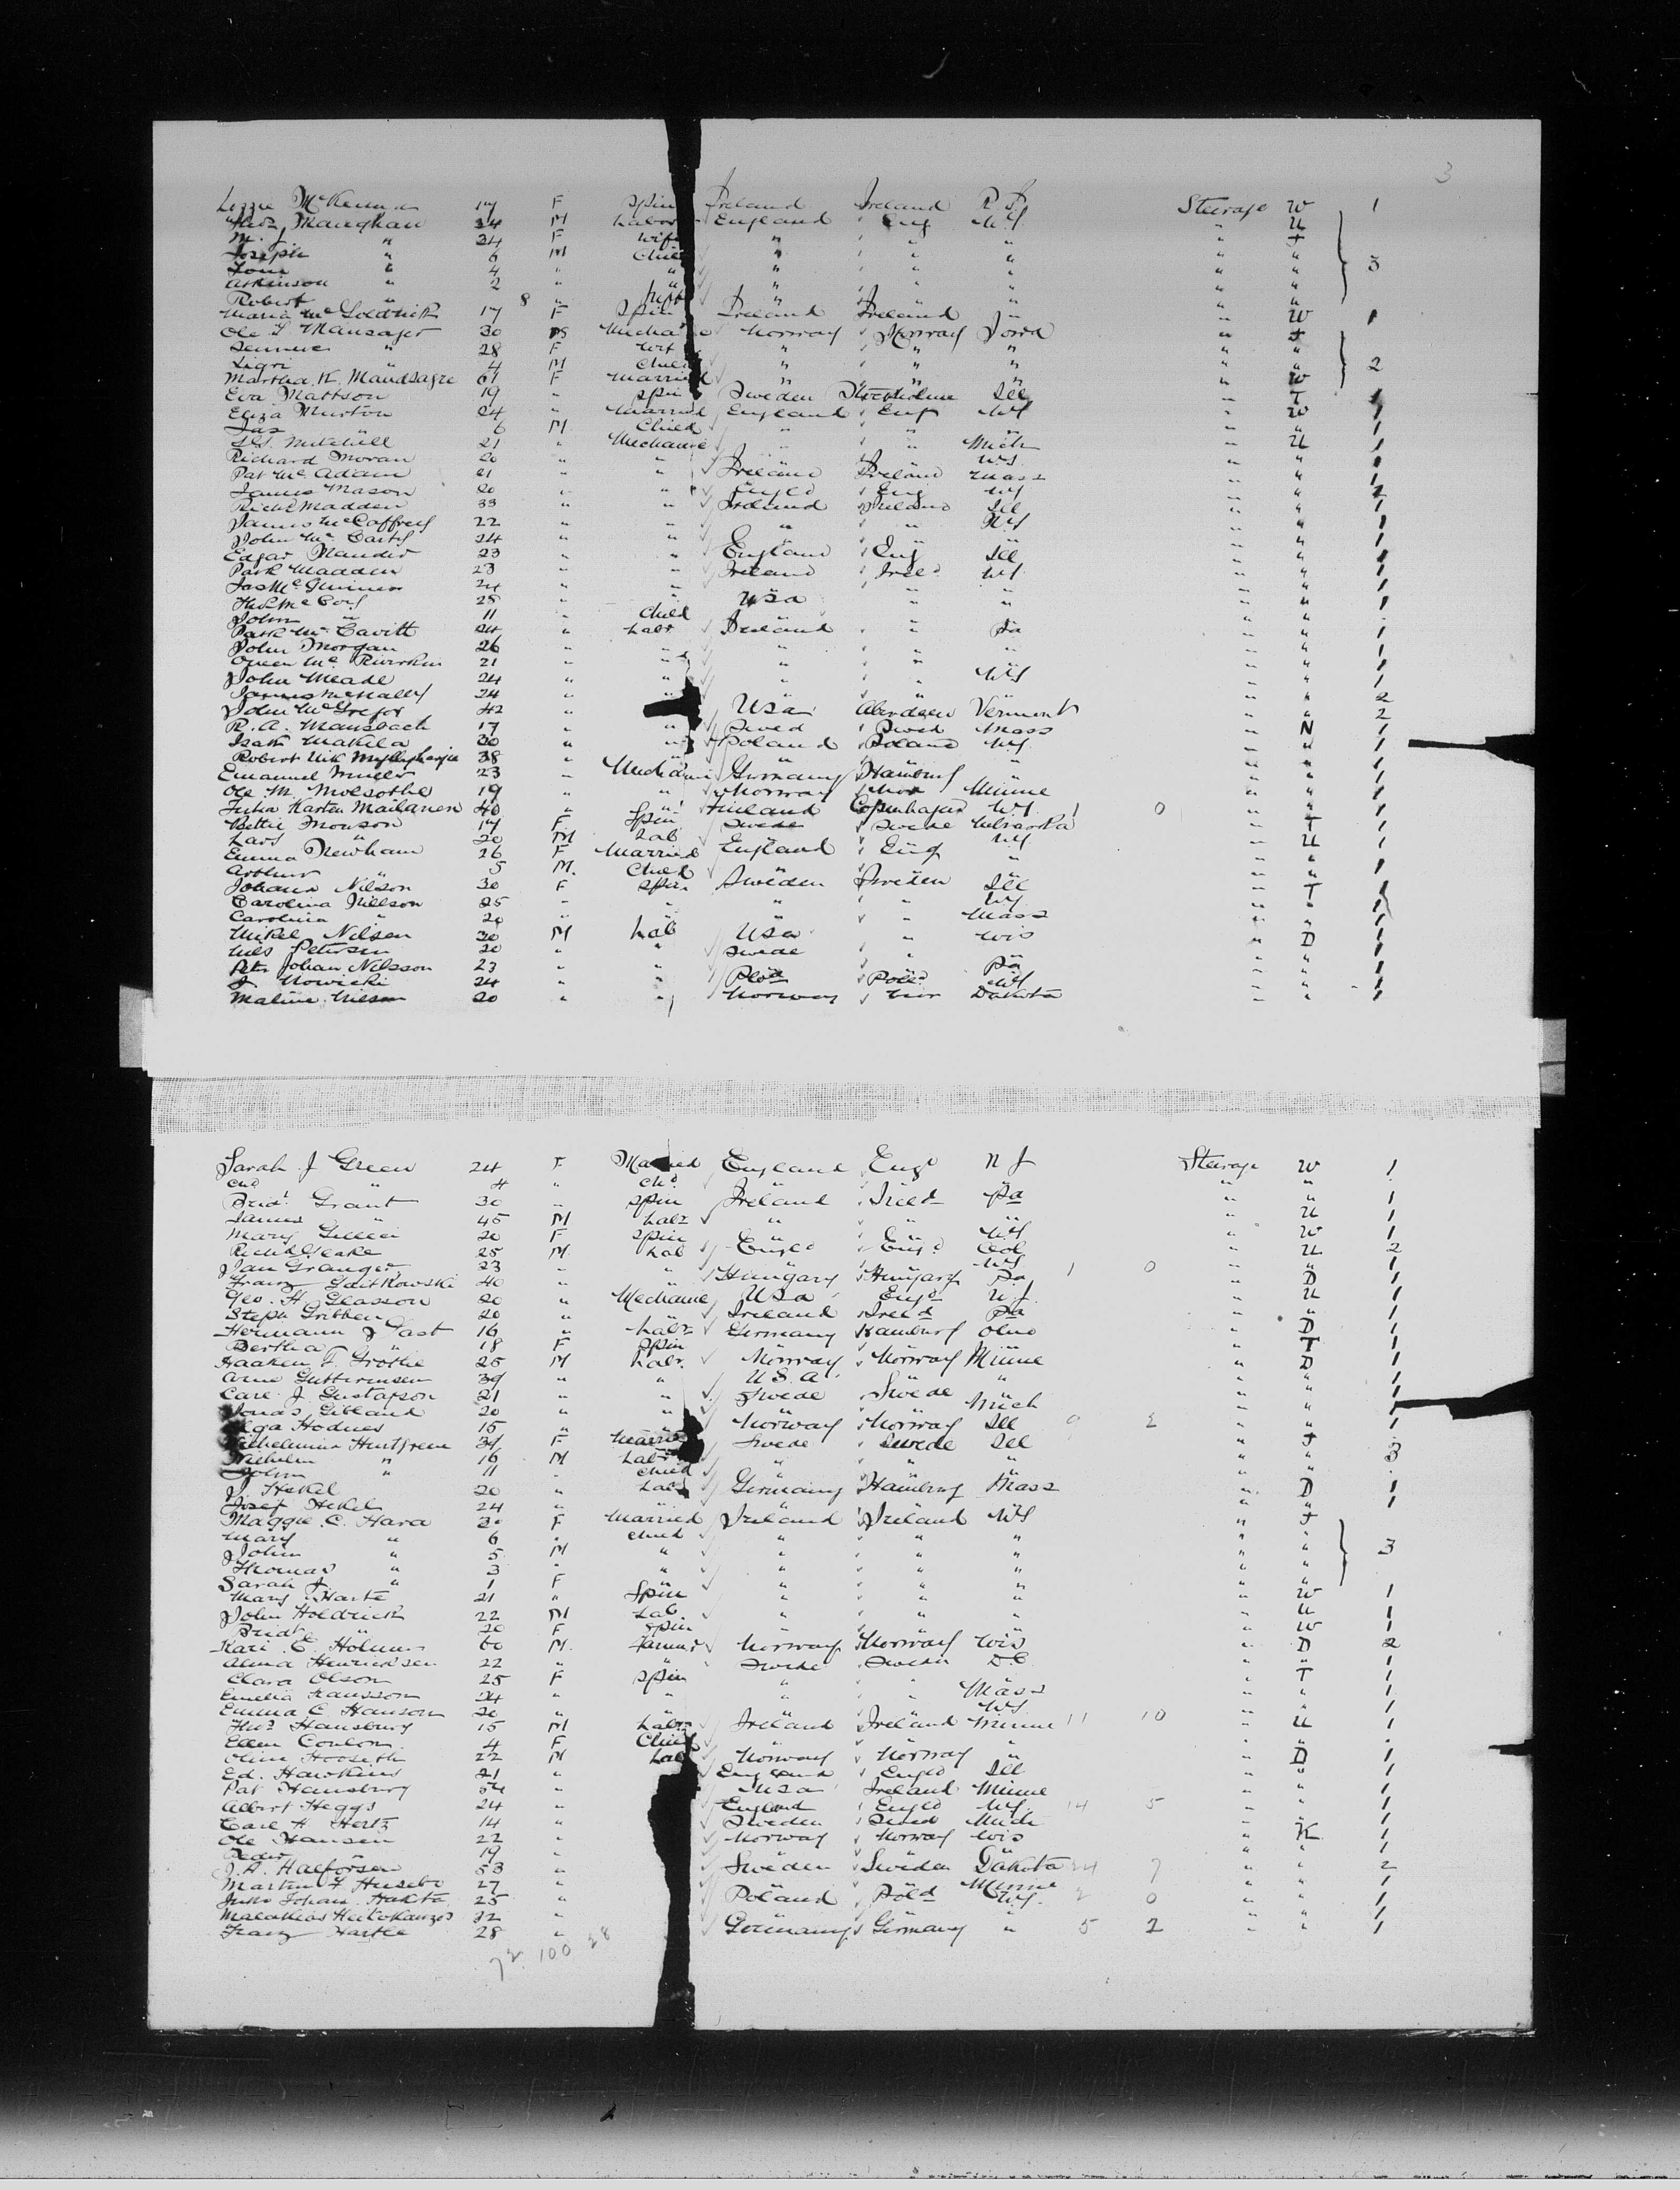 3
Lizzie McKenna 17 F Spin Ireland Ireland R I Steerage W 1
Thos Maughan 34 M Labor England Eng NY " U
M. J. " 24 F Wife " " " " J
Joseph " 6 M Child " " " " " 3
Tom " 4 " " " " " " "
Atkinson " 2 " " " " " " "
Robert " 8 " Inft " " " " "
Maria McGoldrick 17 F Spin Ireland Ireland " " W 1
Ole T Mansager 30 M Mechanic Norway Norway Iowa " J
" 28 F Wif " " " " "
Sigri " 4 M Child " " " " " 2
Martha K. Maudsagre 61 F Married " " " " W
Eva Mattson 19 " Spin Sweden Stockholm Ill " T 1
Eliza Murton 24 " Married England Eng NY " W 1
Jas " 6 M Child " " " " " 1
Mitchell 21 " Mechanic " " Mich " U 1
Richard Moran 20 " " " " NY " " 1
Pat McAdam 21 " " Ireland Ireland Mass " " 1
James Mason 20 " " Engld Eng NY " " 2
Richd Madden 33 " " Ireland Ireland Ill " " 1
James McCaffrey 22 " " " " NY " " 1
John McCarty 24 " " " " " " " 1
Edgar 23 " " England Eng Ill " " 1
Patk Madden 23 " " Ireland Ireld NY " " 1
Jas McGuiness 24 " " " " " " " 1
McCoy 28 " " USA " " " " 1
John " 11 " Child " " " " "
Patk McCavitt 24 " Labr Ireland " Pa " " 1
John Morgan 26 " " " " " " " 1
Owen 21 " " " " " " " 1
John Meade 24 " " " " NY " " 1
James McNally 24 " " " " " " " 2
John McGregor 42 " USA Aberdeen Vermont " " 2
R. A. Mansbach 17 " " Swed Swed Mass " N 1
Isak Makela 30 " " Poland Poland NY " " 1
Robert Nik 38 " " " " " " " 1
Emanuel Muller 23 " Mechanic Germany Hamburg " " " 1
Ole M. 19 " " Norway Nor Minne " " 1
Juha Karsten Mailanen 40 " " Finland Copenhagen NY 1 0 " " 1
Bettie Monson 17 F Spin Swede Swede Nebraska " T 1
Lars " 20 M Lab " " NY " U 1
Emma Newham 26 F Married England Eng " " "
Arthur " 5 M. Child " " " " " 1
Johana Nilson 30 F Spin Sweden Sweden Ill " T 1
Carolina Nillson 25 " " " " NY " " 1
Carolina " 20 " " " " Mass " " 1
Mikel Nilsen 30 M Lab USA " Wis " D 1
Nils Petersen 20 " " Swede " " " " 1
Petr Johan Nilsson 23 " " " " Pa " " 1
J. Nowicki 24 " " Plod Pold NY " " 1
Maline Nilsen 20 " " Norway Nor Dakota " " 1
Sarah J Green 24 F Married England Engd N J Steerage W 1
Chd " 4 " Chd " " " " " "
Bridt Grant 30 " Spin Ireland Ireld Pa " " 1
James " 45 M Labr " " " " U 1
Mary 20 F Spin " " NY " W 1
Richd Gleake 25 M. Lab Engld Engd Col " U 2
Jan Granger 23 " " " " NY " " 1
Franz Gaitkowski 40 " " Hungary Hungary Pa 1 0 " D 1
Geo. H. Glasson 20 " Mechanic USA Engd N.J. " U 1
Steph Gribben 20 " " Ireland Ireld Pa " " 1
Hermann J Gast 16 " Labr Germany Hamburg Ohio " D 1
Bertha " 18 F Spin " " " " T 1
Haaken T. Grothe 25 M Labr. Norway Norway Minne " D 1
Arne Guttormsen 39 " " U.S.A. " " " " 1
Carl J. Gustafson 21 " " Swede Swede " " " 1
Jonas Gibland 20 " " " " Mich " " 1
Helga Hodnes 15 " " Norway Norway Ill 9 2 " " 1
Wilhelmina 34 F Married Swede Swede Ill " J
Wilhelm " 16 M Labr " " " " " 3
John " 11 " Child " " " " "
J. Hekel 20 " Labr Germany Hamburg Mass " D 1
Josef Hekel 24 " " " " " " " 1
Maggie C. Hara 30 F Married Ireland Ireland NY " J
Mary " 6 " Child " " " " "
John " 5 M " " " " " " 3
Thomas " 3 " " " " " " "
Sarah J. " 1 F " " " " " "
Mary Harte 21 " Spin " " " " W 1
John Holdrick 22 M Lab. " " " " U 1
Bridt " 20 F Spin " " " " W 1
Kari E Holmes 60 M. Farmer Norway Norway Wis " D 2
Alma Henricksen 22 " " Swede Sweden D.C. " " 1
Clara Olson 25 F Spin " " " " T 1
Emelia Hansson 24 " " " " Mass " " 1
Emma C. Hanson 20 " " " " NY " " 1
Thos Hansbury 15 M Labr Ireland Ireland Minne 11 10 " U 1
Ellen Conlon 4 F Child " " " " "
Oline 22 M Lab Norway Norway " " D 1
Ed. Hawkins 21 " England Engd Ill " " 1
Pat Hansbury 54 " USA Ireland Minne " " 1
Albert Heggs 24 " England Engld NY 14 5 " " 1
Carl H Hertz 14 " Sweden Swed Mich " " 1
Ole Hansen 22 " Norway Norway Wis " K 1
Peder " 19 " " " " " " 1
J. A. Halforsen 53 " Sweden Sweden Dakota 24 7 " " 2
Martin F 27 " " " Minne " " 1
Johan Hakta 25 " Poland Pold NY. 2 0 " " 1
Malakias 32 " " " " " " 1
Franz Hartle 28 " Germany Germany " 5 2 " " 1
72 100 28